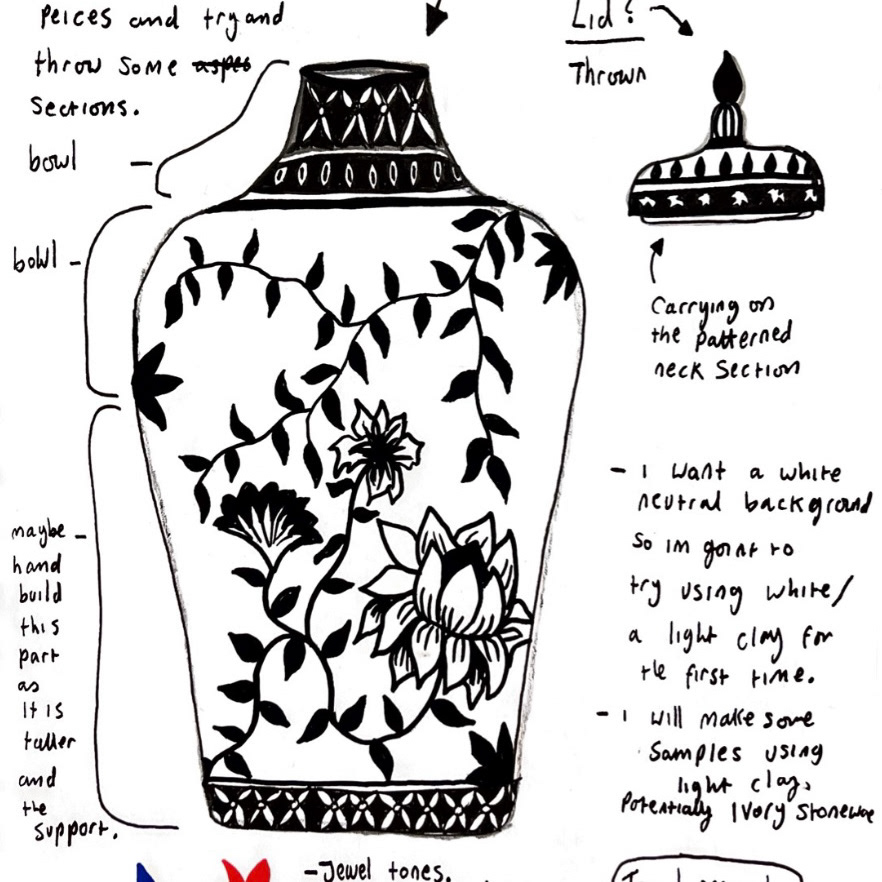 Peices and try and
throw some aspes
Sections.
bowl
bowl
maybe
hand
build
this
part
as
it is
taller
and
the
support.
Lid?
Thrown
Carrying on
the patterned
neck section
- I want a white
neutral background
so im goint to
try using white/
a light clay for
the first time.
- I will make some
samples using
light clay,
Potentially Ivory Stoneware
- Jewel tones.